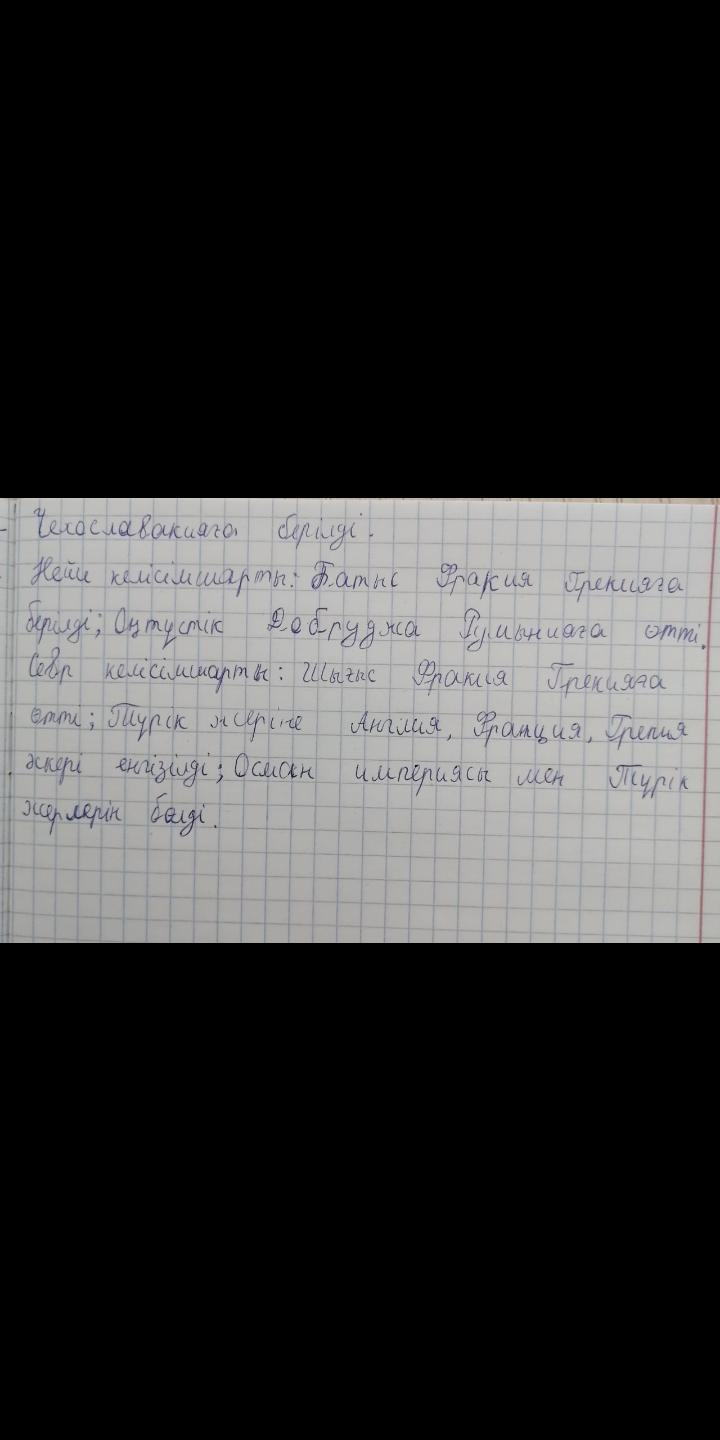 Чехославакияға берілді.
Нейи келісімшарты: Батыс Фракия Грекияға
берілді; Оңтүстік Добруджа Румынияға өтті.
Севр келісімшарты: Шығыс Фракия Грекияға
өтті; Түрік жеріне Англия, Франция, Греция
әскері енгізілді; Осман империясы мен Түрік
жерлерін бөлді.